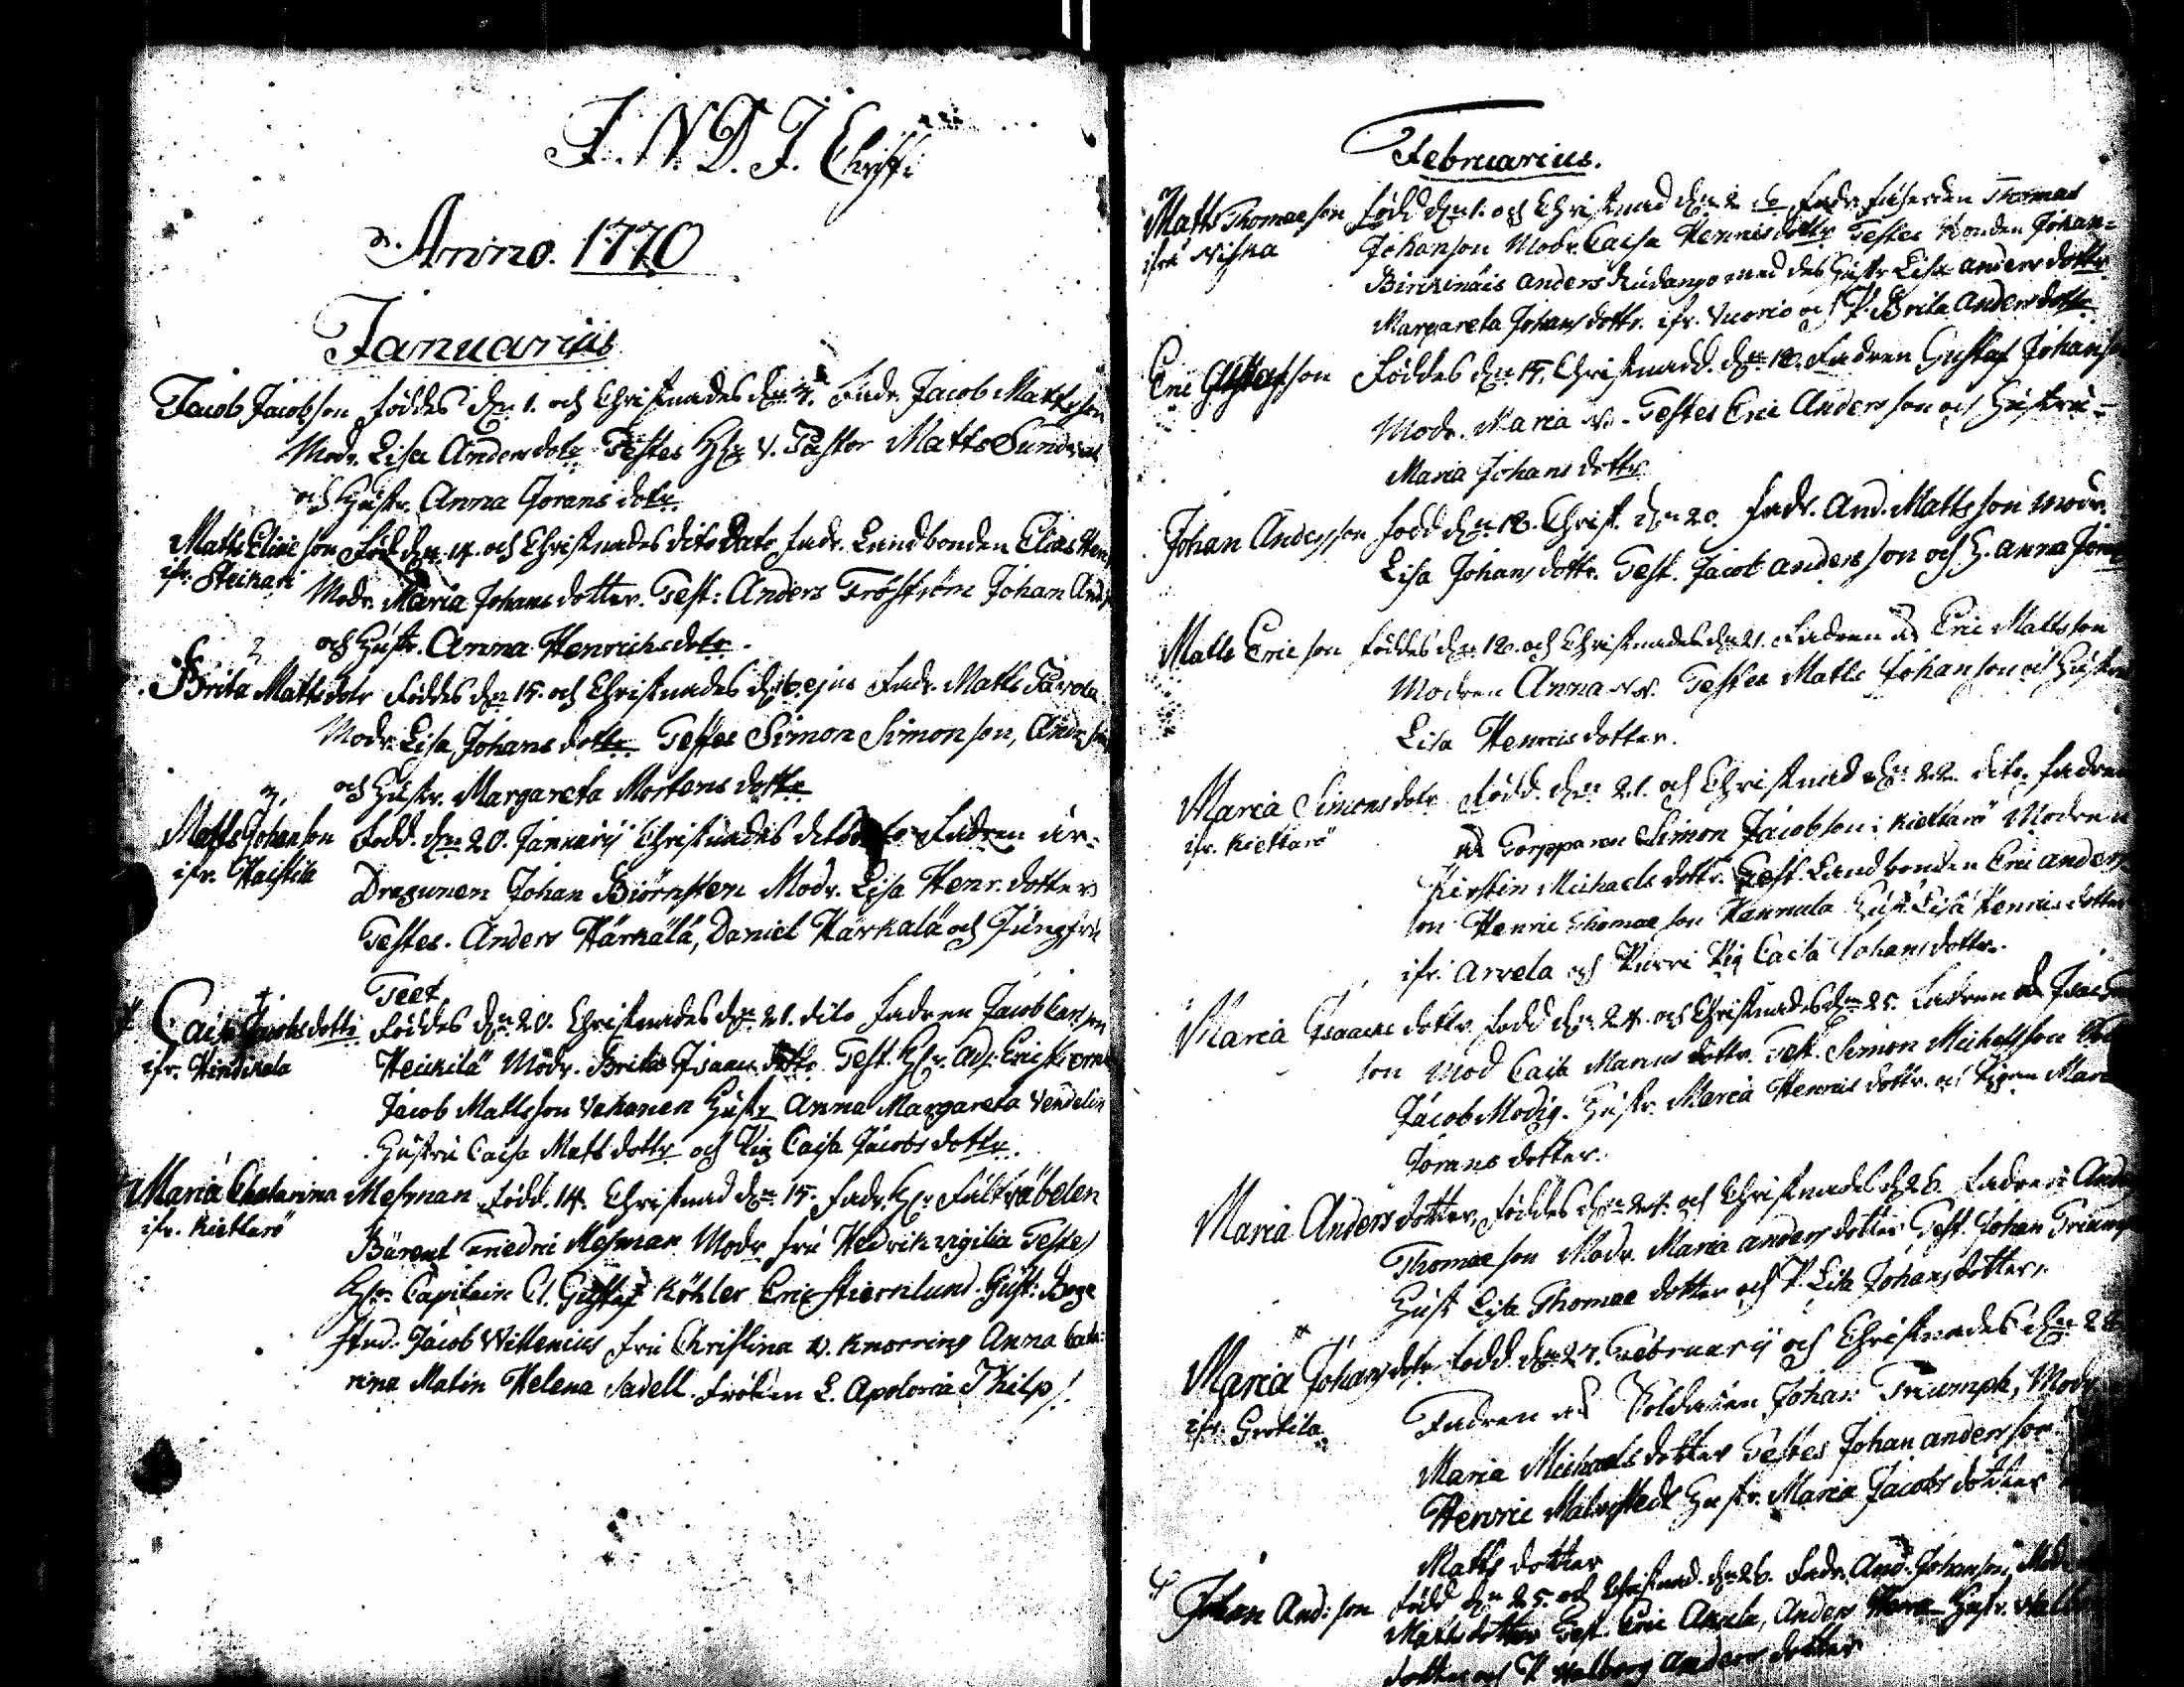 I. N. D. J. Christi
Anno. 1770
Januarius
Jacob Jacobson föddes den 1. och Christnades den 4. Fadr. Jacob Mattsson
Modr. Lisa Andersdotr Testes H. V. Pastor Matts Sund
och Hustr. Anna Jörans dotr.
Matts Eliæ son född den 14. och Christnades dito dato fadr. Landbonden Elias Hen
ifr. Steikari Modr. Maria Johans dotter. Test: Anders Fröström Johan And
och Hustr. Anna Henrichsdotr.
Brita Mattsdotr föddes den 15. och Christnades d. 16. ejus Fadr. Matts Parola
Modr. Lisa Johans dottr Testes Simon Simonson, Anders
och Hustr. Margareta Mortens dottr
Matts Johanson född. den 20. Januarÿ Christnades dito dato Fadren är
ifr. Haistila Dragunen Johan Biörnsten Modr. Lisa Henr. dotter
Testes. Anders Härkälä, Daniel Härkälä och Jungfru
Teet
Caisa Jacobsdottr föddes den 20. Christnades den 21. dito Fadren Jacob Carsson
ifr. Hindikala Heickilä Modr. Brita Isaacs dottr Test. H. Adj. Eric
Jacob Mattsson Vahanen Hustr Anna Margareta Vendelin
Hustru Caisa Mats dottr och Pig Caisa Jacobs dottr.
Maria Chatarina Mesman född. 14. Christnad den 15. Fadr. H. Fältväbelen
ifr. Kiettarö Bärent Friedric Mesman Modr fru Hedvik vigilia Testes
H. Capitain C. Gustaf Köhler Eric Stiernlund. Hust: Boge
stud. Jacob Willenius fru Christina v. Knorring Anna Catha
rina Malin Helena Sadell. fröken L. Apolonia Thilp
Februarius.
Matts Thomæson född den 1. och Christnad den 2 do Fadr. Thomas
ifrå Niska Johanson Modr. Caisa Henricsdottr Testes Bonden Johan
Birikinäis Anders Rudango med des Hustr Lisa Anders dottr
Margareta Johans dottr. ifr. Vuorio och P. Brita Andersdottr
Eric Gustafson Föddes den 15. Christnadd. den 18. Fadren Gustaf Johans
Modr. Maria N. Testes Eric Anderson och Hustru
Maria Johans dottr
Johan Andersson född den 18. Christ. den 20. Fadr. And. Mattsson Modr.
Lisa Johans dottr. Test. Jacob Anderson och H. Anna Jöran
Matts Ericson föddes den 18. och Christnades den 21. Fadren är Eric Mattsson
Modren Anna N. Testes Matts Johanson och Hustru
Lisa Henrics dotter.
Maria Simonsdotr född. den 21. och Christnad den 22. dito Fadren
ifr. Kiettarö är Torpparen Simon Jacobson i Kiettarö Modren
Kirstin Michaels dottr. Test. Landbonden Eric Anders
son Henric Thomæson Hannula Hustr. Lisa Henricsdotter
ifr. Arvela och Purri Pig Caisa Johansdotter.
Maria Isaacs dottr. född den 24. och Christnades den 25. Fadren är Isac
son Mod Caisa Marcus dottr. Test. Simon Michelsson
Jacob Modig. Hustr. Maria Henrics dottr. och Pigan Maria
Jörans dotter.
Maria Anders dotter, föddes den 24. och Christnades d. 26. Fadren är Anders
Thomæson Modr. Maria Anders dotter Test. Johan Triumph
Hust Lisa Thomæ dotter och P. Lisa Johansdotter.
Maria Johansdotr född. den 27. Februarÿ och Christnades den 28
ifr. Grekila Fadren är Soldaten Johan Triumph, Modr
Maria Michaels dotter Testes Johan Anderson
Henric Malmstedt Hustr. Maria Jacobs dotter
Matts dotter
Johan And: son född den 25. och Christnad. den 26. Fadr. And. Johanson, Modr
Matts dotter Test. Eric Anders Hustr.
dotter och P. Walborg Anders dotter